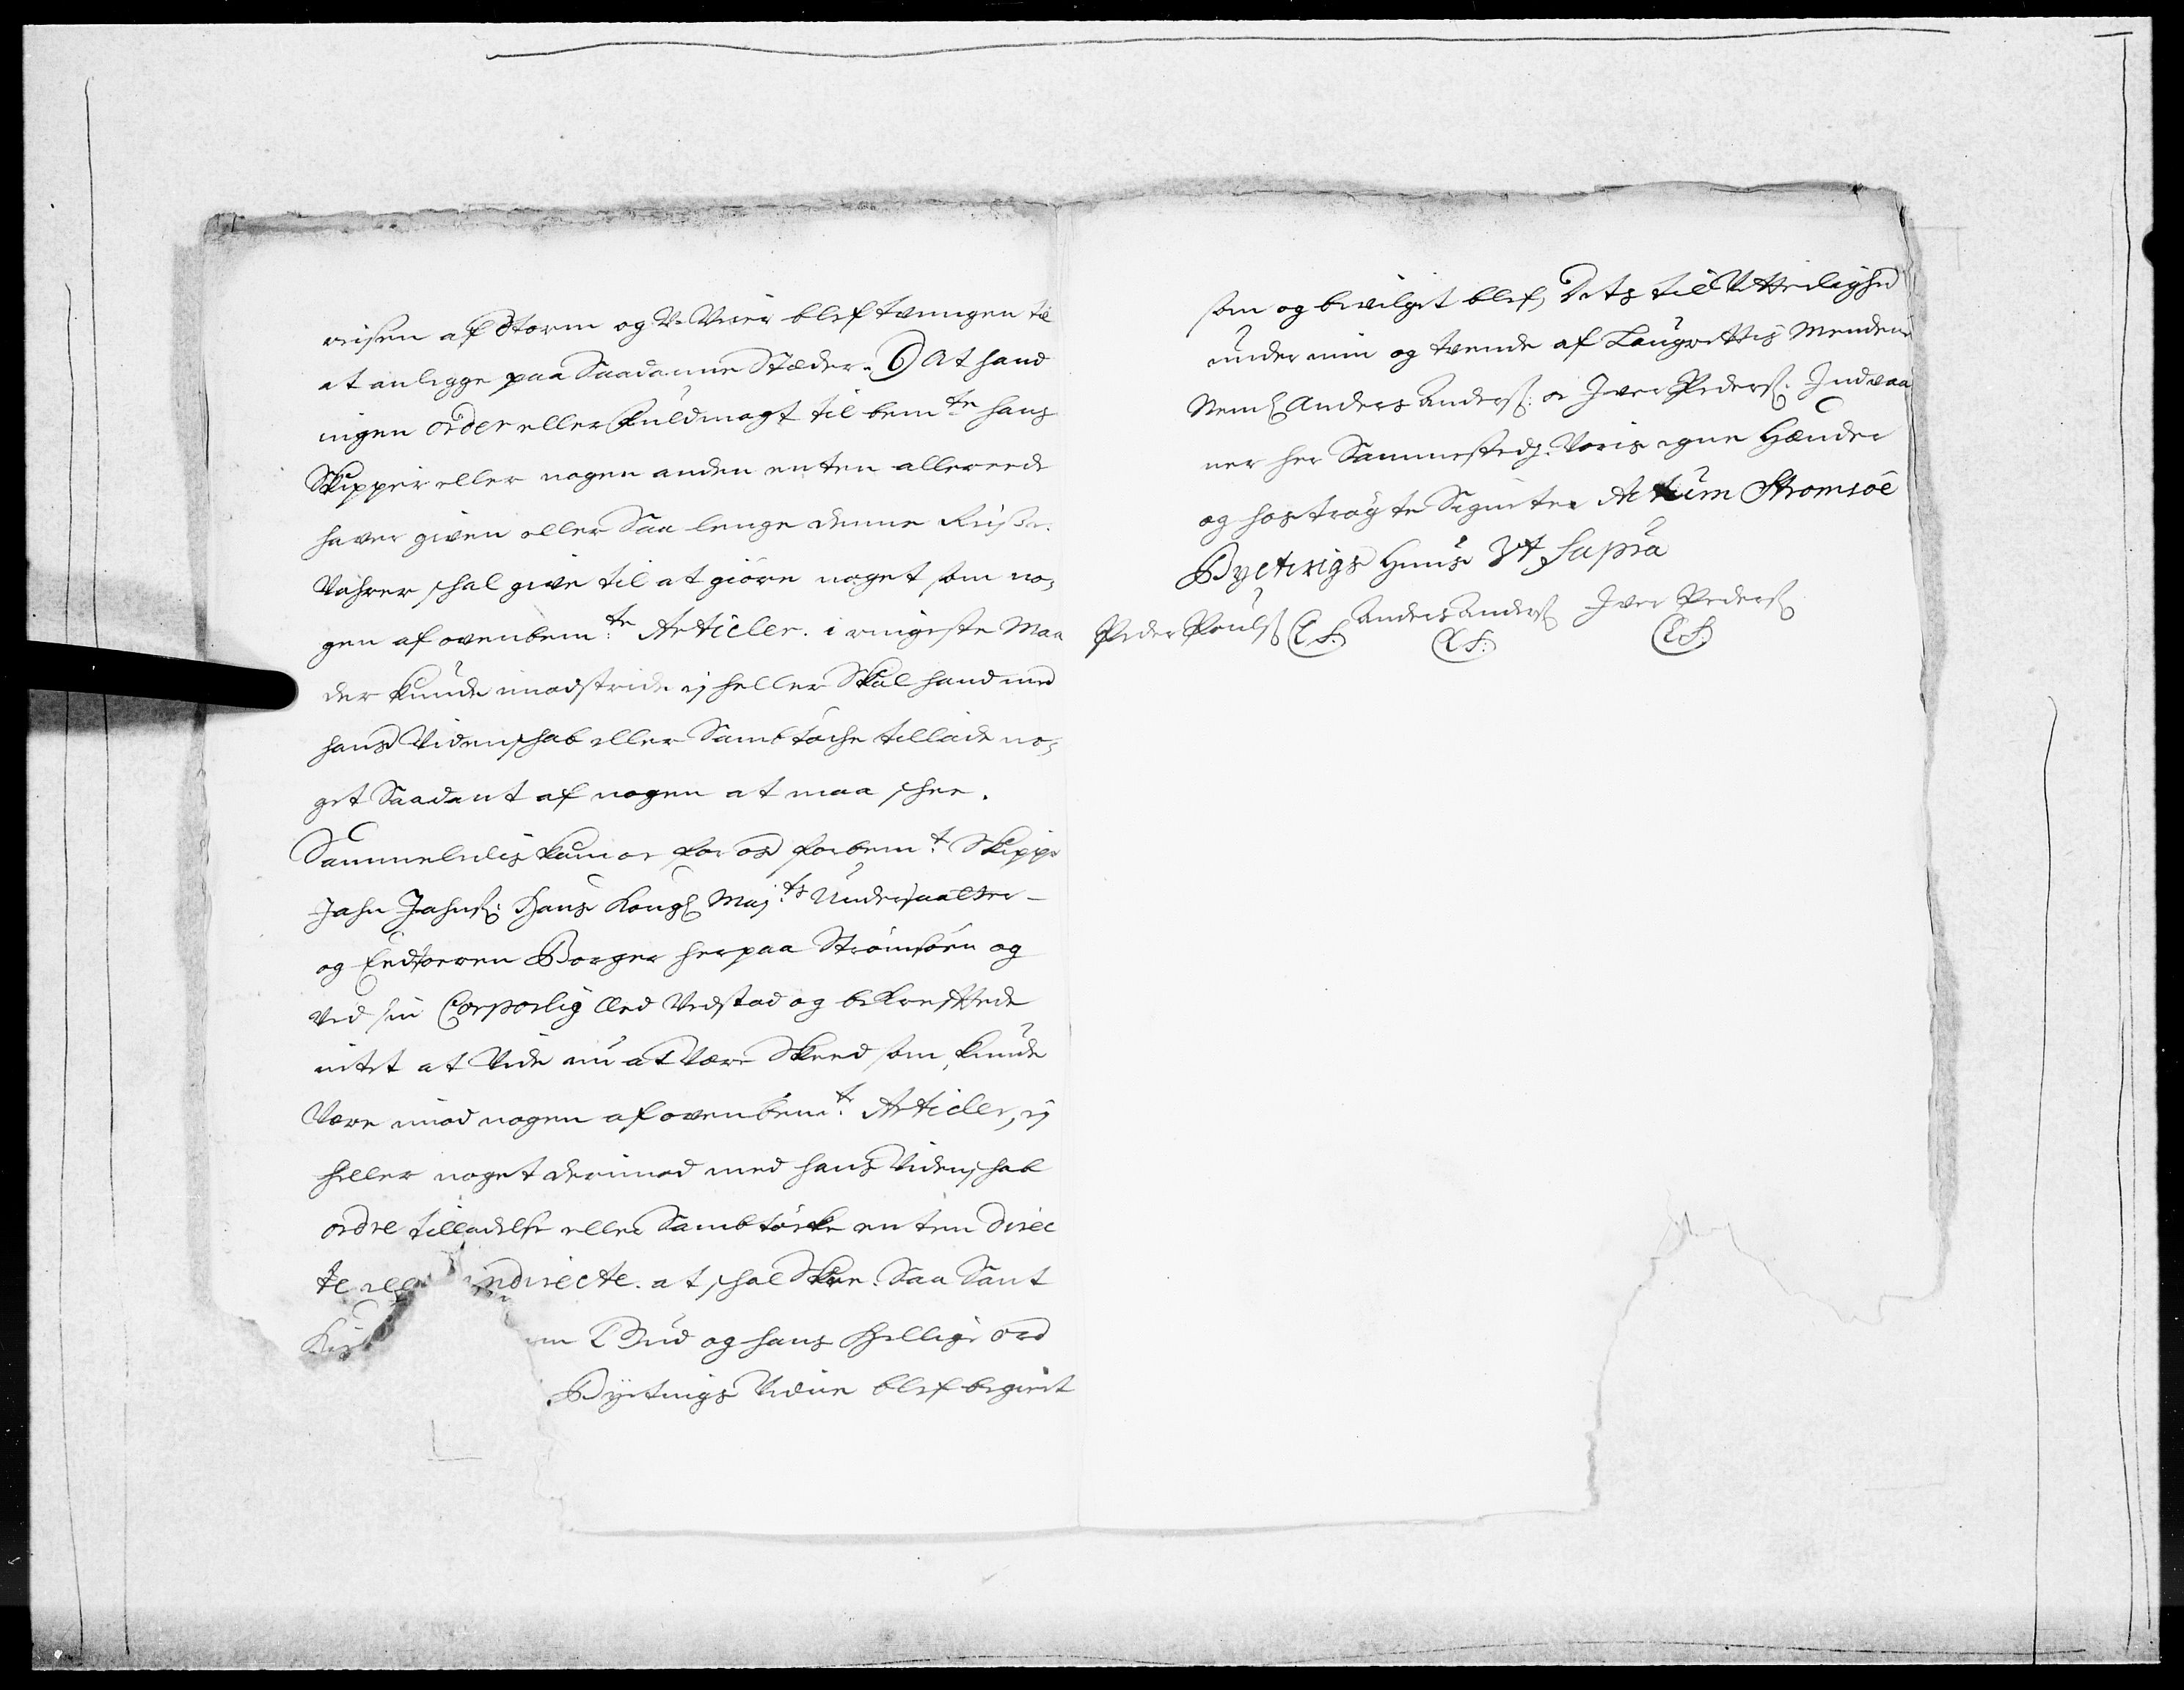 reisen af Storm og V-Veier blef tvungen til
at anlegge paa Saadanne Stæder. 6) At hand
ingen order eller Fuldmagt til bem.te hans
Skipper eller nogen anden enten allereede
haver given eller Saa lenge denne Reise
Vahrer schal give til at giöre noget som no-
gen af ovenbem:te Articler. i ringeste Maa
der kunde imodstride ej heller Skal hand med
hans Videnschab eller Sambtöche tillade no-
get Saadant af nogen at maa schee.
Sammeledis kom or for os forbem.t Skipp
Jahn Jahns: Hans Kongl Maj.ts Undersaatter
og Eedsoeren Borger her paa Strömsöen og
Ved sin Corporlig Eed Vedstod og bekrefftede
intet at Vide nu at Være Skeed som kunde
Være imod nogen af ovenbem.t Articler, ej
heller noget derimod med hans Videnschab
ordre tilladelse eller Sambtöcke enten direc
te indirecte. at schal Skee. Saa Sant
Bud og hans Hellige ord
Byetings Vidne blef begiert
som og bevilget blef, Dets till Vitterlighed
under min og tvende af Laugrettis Mendene
Neml Anders Anders: o Iver Peders: Indvaa
ner her Sammesteds: Voris egne Hænder
og hoströgte Signeter Actum Stromsöe
Byetings Huus Ut Supra
Peder Pouls L.S. Anders Anders Iver Peders
L.S. L.S.